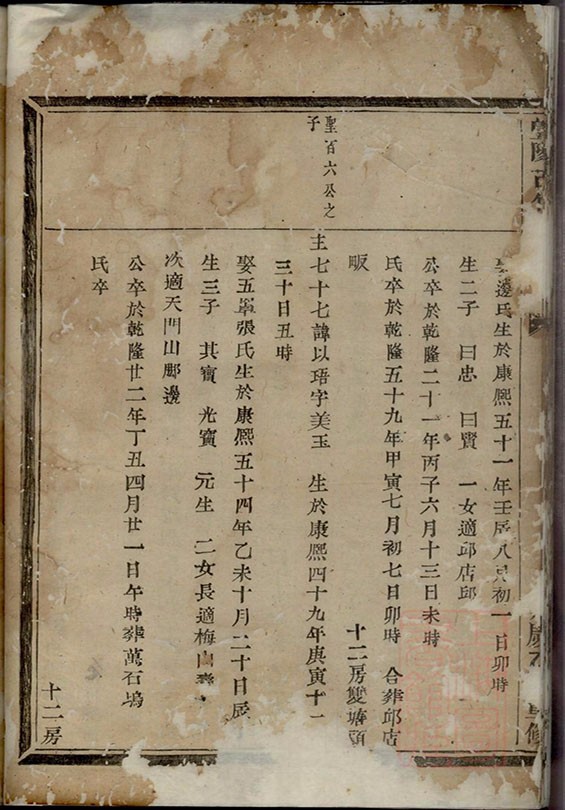 娶邊氏生於康熙五十一年壬辰八月初一日卯時
生二子 曰忠 曰賢 一女適邱店邱
公卒於乾隆二十一年丙子六月十三日未時
氏卒於乾隆五十九年甲寅七月初七日卯時 合葬邱店
畈 十二房雙塘頭
聖百六公之
子
主七十七諱以珸字美玉 生於康熈四十九年庚寅十一
三十日丑時
娶五睪張氏生於康熈五十四年乙未十月二十日辰
生三子 其寶 光寶 元生 二女長適梅山
次適天門山郿邊
公卒於乾隆廿二年丁丑四月廿一日午時葬萬石塢
氏卒
十二房